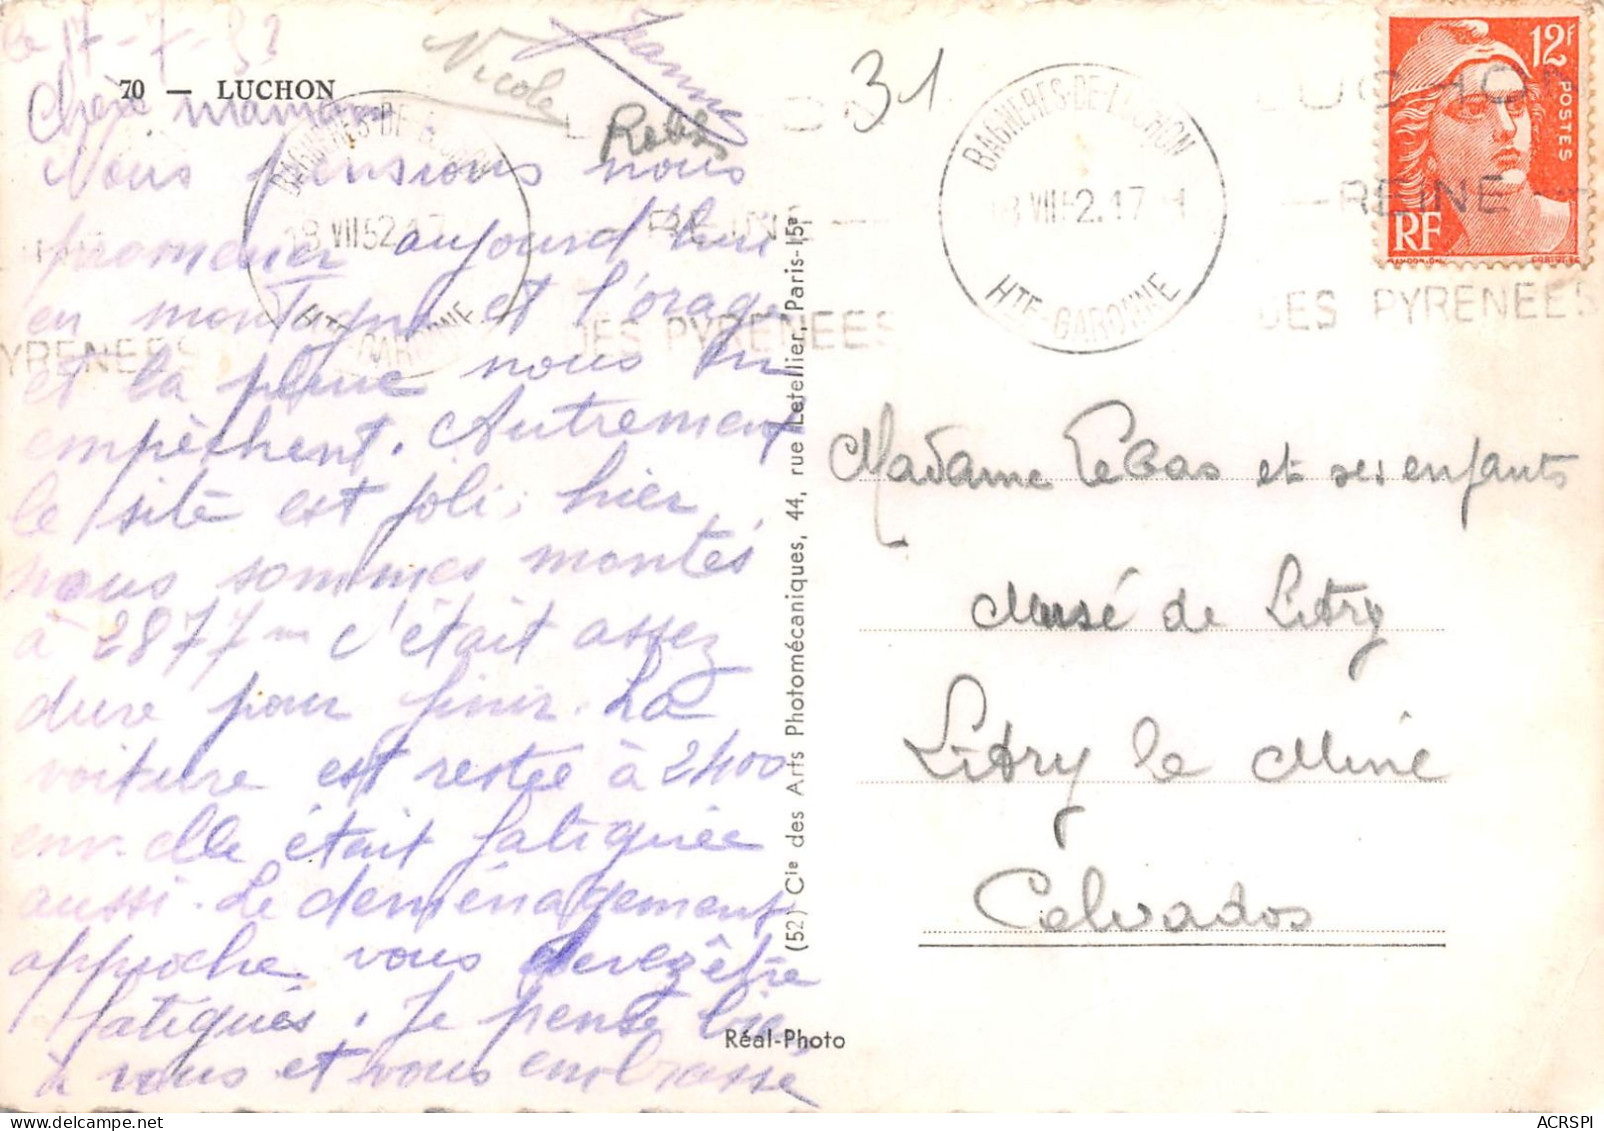 le 17-7-52
70 — LUCHON
Chère maman
Nous pensions nous
promener aujourd'hui
en montagne et l'orage
et la pluie nous en
empêchent. Autrement
le site est joli, hier
nous sommes montés
à 2877m c'était assez
dure pour finir. La
voiture est restée à 2400
env. elle était fatiguée
aussi. Le déménagement
approche vous devez être
fatigués. Je pense bien
à vous et vous embrasse
Jeanne
Nicole
Rebas
31
BAGNERES-DE-LUCHON
18 VII 52.17
HTE-GARONNE
REINE
DES PYRENEES
PYRENEES
BAGNERES-DE-LUCHON
18 VII 52.17 H
HTE-GARONNE
LUCHON
— REINE —
DES PYRENEES
12F
POSTES
RF
(52) Cie des Arts Photomécaniques, 44, rue Letellier, Paris-15e
Madame Lebas et ses enfants
Musé de Litry
Litry la Mine
Calvados
Réal-Photo
ACRSPI